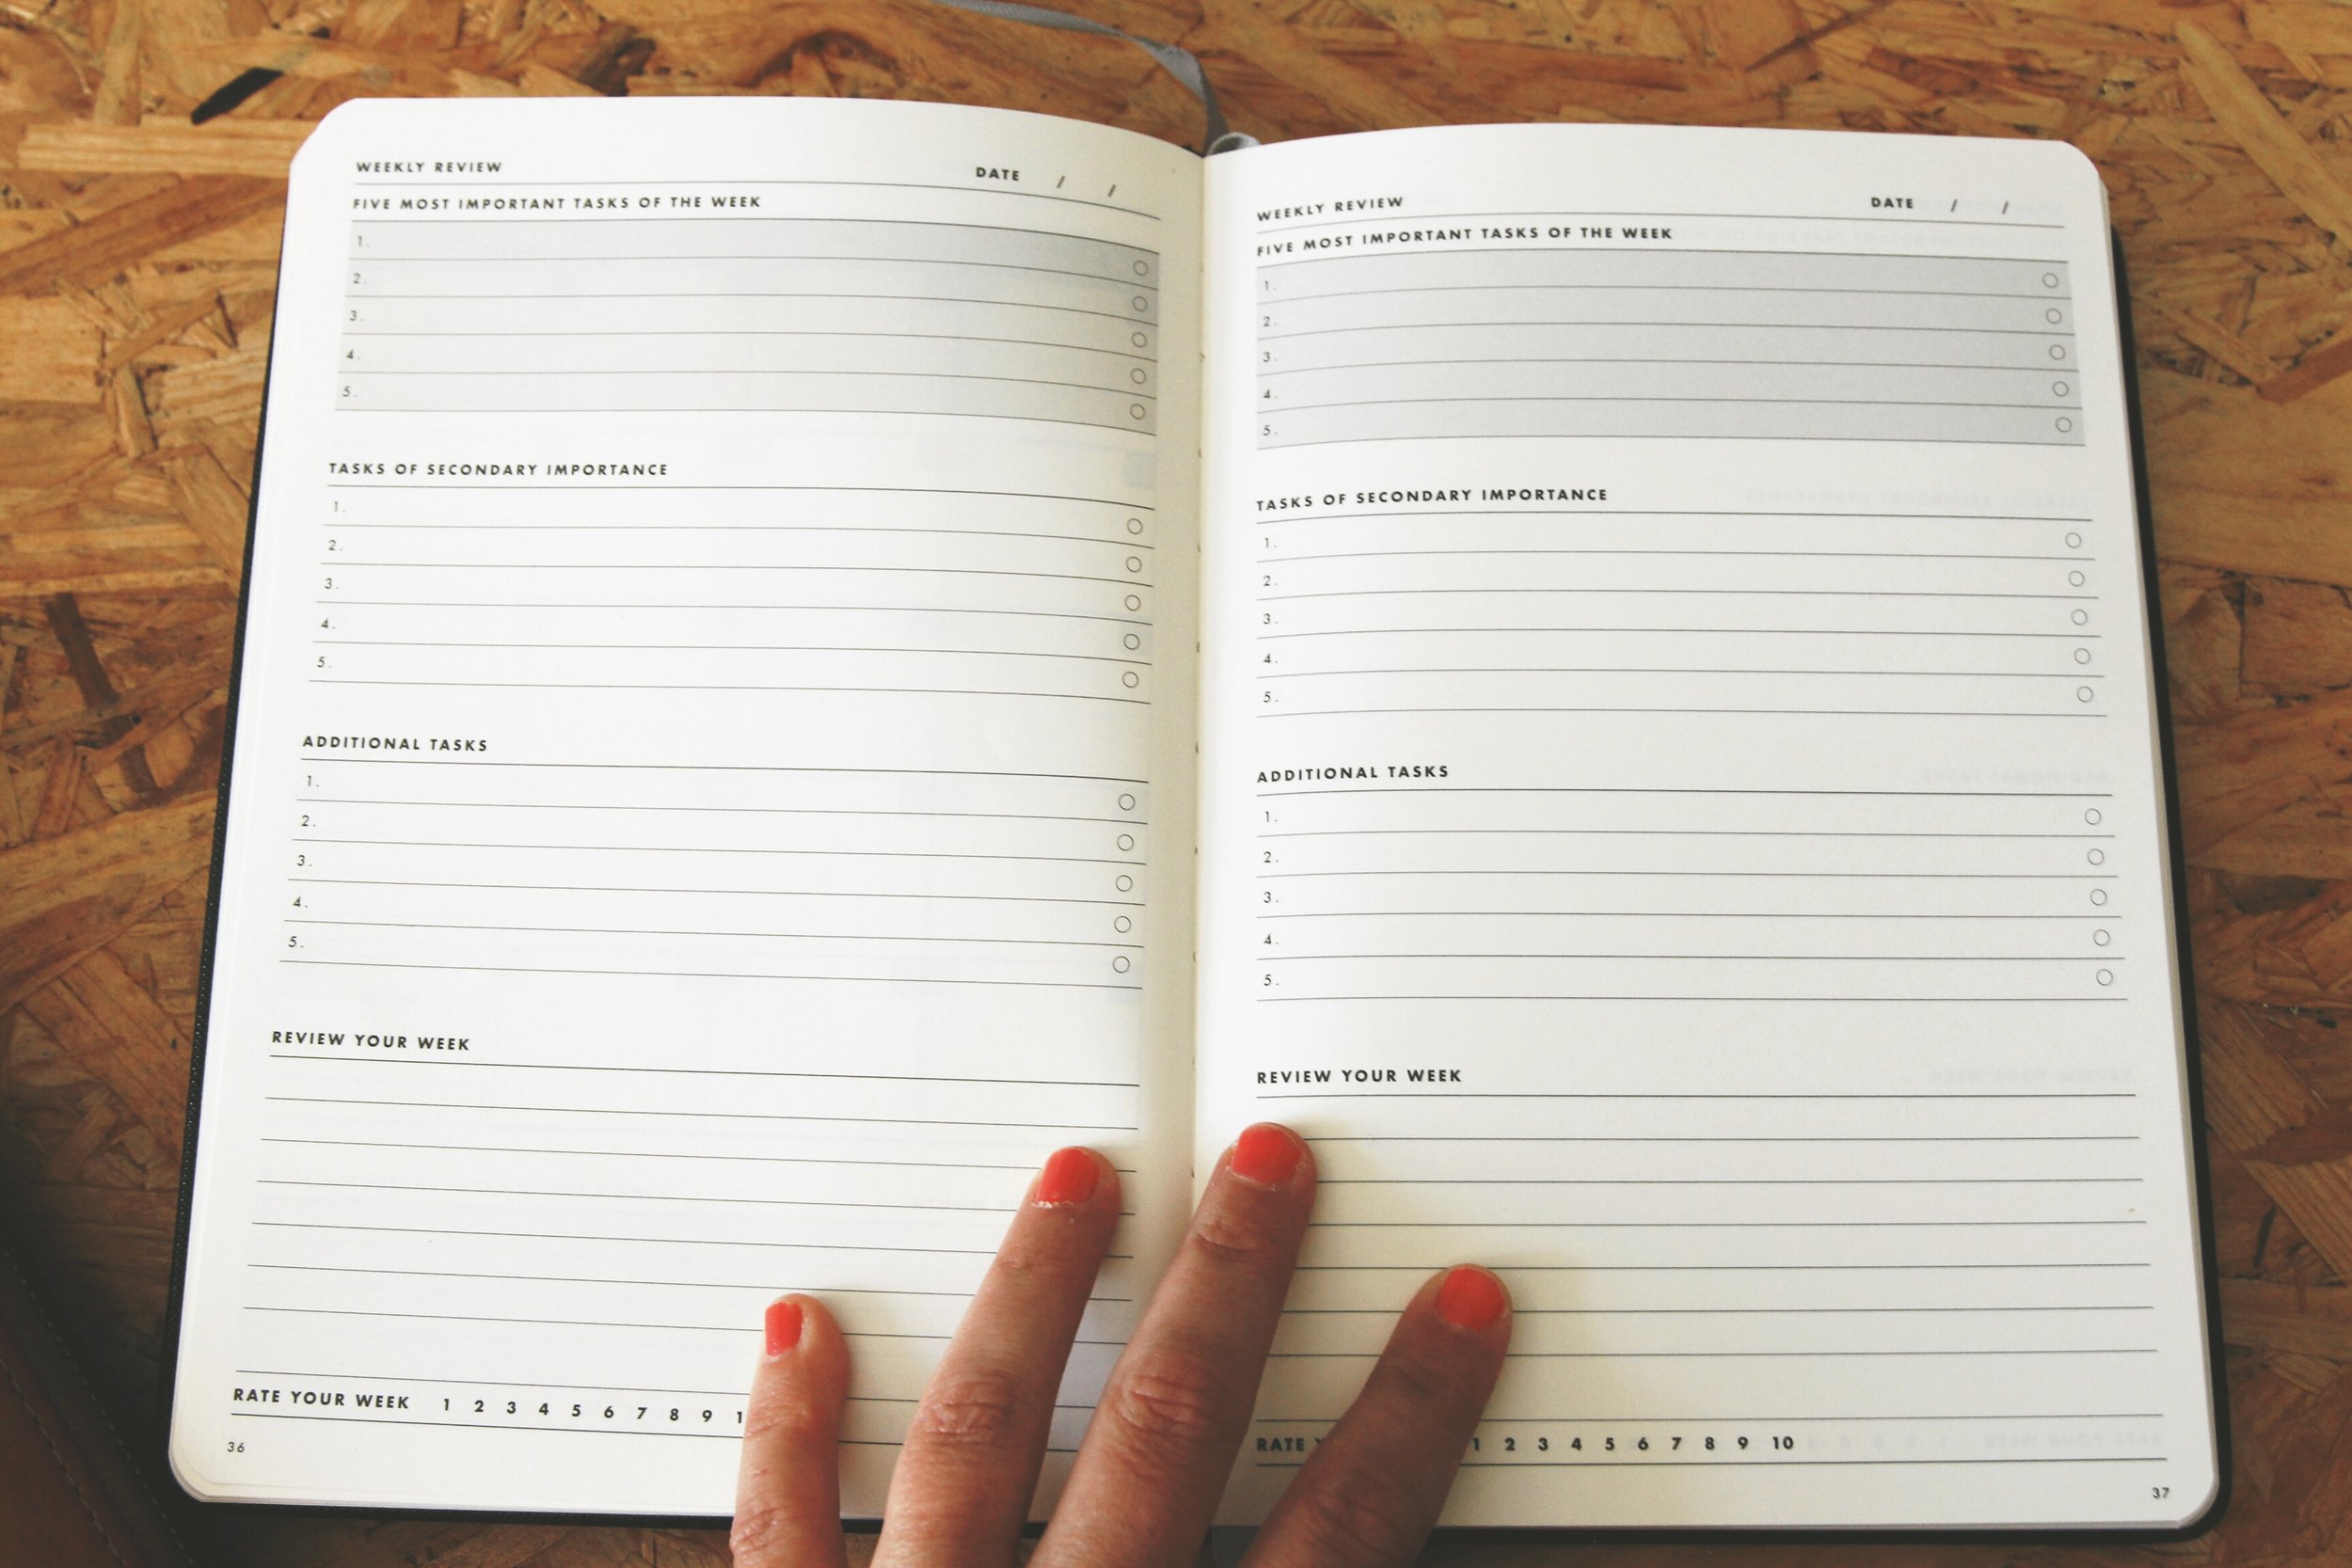 WEEKLY REVIEW DATE / /
FIVE MOST IMPORTANT TASKS OF THE WEEK
1.
2.
3.
4.
5.
TASKS OF SECONDARY IMPORTANCE
1.
2.
3.
4.
5.
ADDITIONAL TASKS
1.
2.
3.
4.
5.
REVIEW YOUR WEEK
RATE YOUR WEEK 1 2 3 4 5 6 7 8 9 1
36
WEEKLY REVIEW DATE / /
FIVE MOST IMPORTANT TASKS OF THE WEEK
1.
2.
3.
4.
5.
TASKS OF SECONDARY IMPORTANCE
1.
2.
3.
4.
5.
ADDITIONAL TASKS
1.
2.
3.
4.
5.
REVIEW YOUR WEEK
RATE 1 2 3 4 5 6 7 8 9 10
37